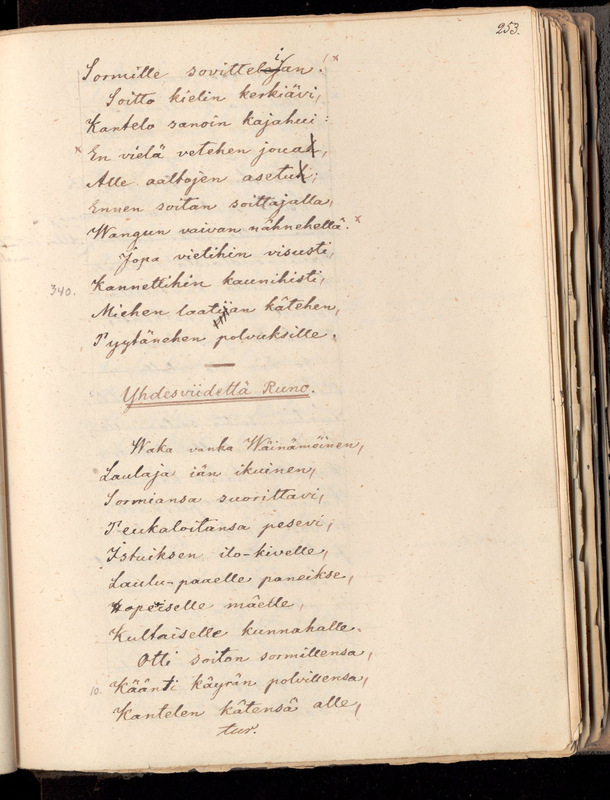 253.
Sormille sovittelijan.
Soitto kielin kerkiävi,
Kantelo sanoin kajahui:
En vielä vetehen joua,
Alle aaltojen asetu;
Ennen soitan soittajalla,
Wangun vaivan nähnehellä.
Jopa vietihin visusti,
340. Kannettihin kaunihisti,
Miehen laatijan kätehen,
Pyytänehen polvuksille.
Yhdesviidettä Runo.
Waka vanha Wäinämöinen,
Laulaja iän ikuinen,
Sormiansa suorittavi,
Peukaloitansa pesevi,
Istuiksen ilo-kivelle,
Laulu-paaelle paneikse,
Hopeiselle mäelle,
Kultaiselle kunnahalle.
Otti soiton sormillensa,
10. Käänti käyrän polvillensa,
Kantelen kätensä alle,
tur.